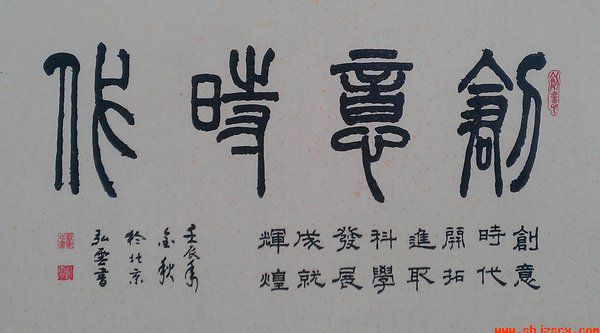 創意時代
創意
時代
開拓
進取
科學
發展
成就
輝煌
壬辰年
金秋
於北京
弘雲書
www.shjzscx.com